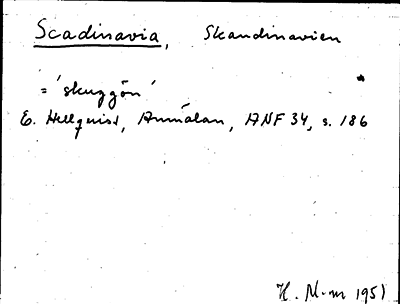 Scadinavia, Skandinavien
= 'skuggön'
E. Hellquist, Anmälan, ANF 34, s. 186
H. N-m 1951